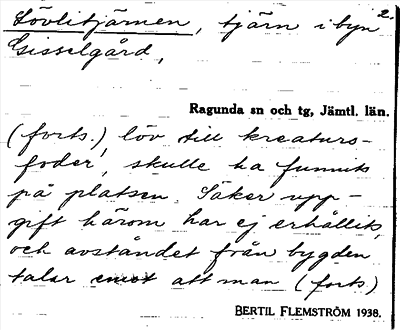 2.
Lövlitjärnen, tjärn i byn
Gisselgård,
Ragunda sn och tg, Jämtl. län.
(forts.) löv till kreaturs-
foder, skulle ha funnits
på platsen. Säker upp-
gift härom har ej erhållits,
och avståndet från bygden
talar emot att man (forts)
BERTIL FLEMSTRÖM 1938.